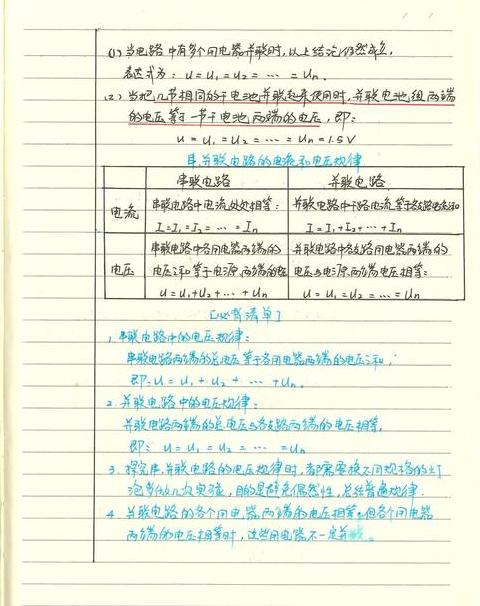 (1) 当电路中有多个用电器并联时,以上结论仍然成立,
表达式为: U=U₁=U₂=…=Uₙ.
(2) 当把几节相同的干电池并联起来使用时,并联电池组两端
的电压等于一节干电池两端的电压,即:
U=U₁=U₂=…=Uₙ=1.5V
串、并联电路的电流和电压规律
串联电路 并联电路
电流
串联电路中电流处处相等:
I=I₁=I₂=…=Iₙ
并联电路中干路电流等于各支路电流和
I=I₁+I₂+…+Iₙ
电压
串联电路中各用电器两端的
电压之和等于电源两端的电压
U=U₁+U₂+…+Uₙ
并联电路中各支路用电器两端的
电压与电源两端电压相等:
U=U₁=U₂=…=Uₙ
[必背清单]
1. 串联电路中的电压规律:
串联电路两端的总电压等于各用电器两端的电压之和,
即:U=U₁+U₂+…+Uₙ.
2. 并联电路中的电压规律:
并联电路两端的总电压与各支路两端的电压相等,
即: U=U₁=U₂=…=Uₙ
3. 探究串、并联电路的电压规律时,都需要换不同规格的灯
泡多做几次实验,目的是避免偶然性,总结普遍规律.
4. 并联电路的各个用电器两端的电压相等,但各个用电器
两端的电压相等时,这些用电器不一定并联。